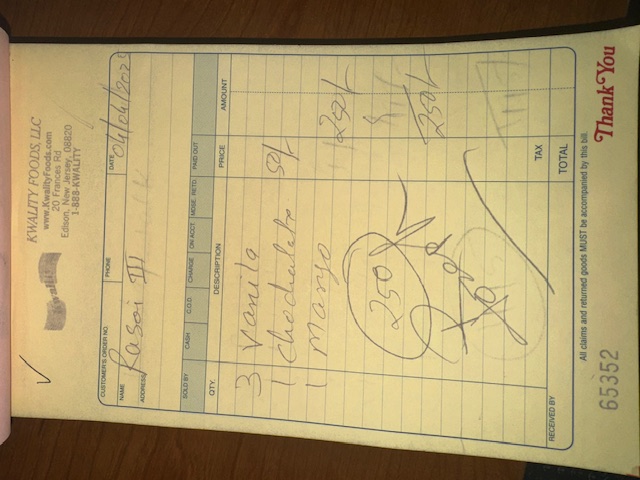 KWALITY FOODS, LLC
Kwality
www.KwalityFoods.com
20 Frances Rd
Edison, New Jersey, 08820
1-888-KWALITY
CUSTOMER'S ORDER NO. PHONE DATE 04/04/202
NAME Rasoi III
ADDRESS
SOLD BY CASH C.O.D. CHARGE ON ACCT. MDSE. RETD. PAID OUT
QTY. DESCRIPTION PRICE AMOUNT
3 Vanila
1 Chochalate 50/-
1 Mango 250/-
250/-
250/-
TAX
RECEIVED BY TOTAL
All claims and returned goods MUST be accompanied by this bill.
65352 Thank You